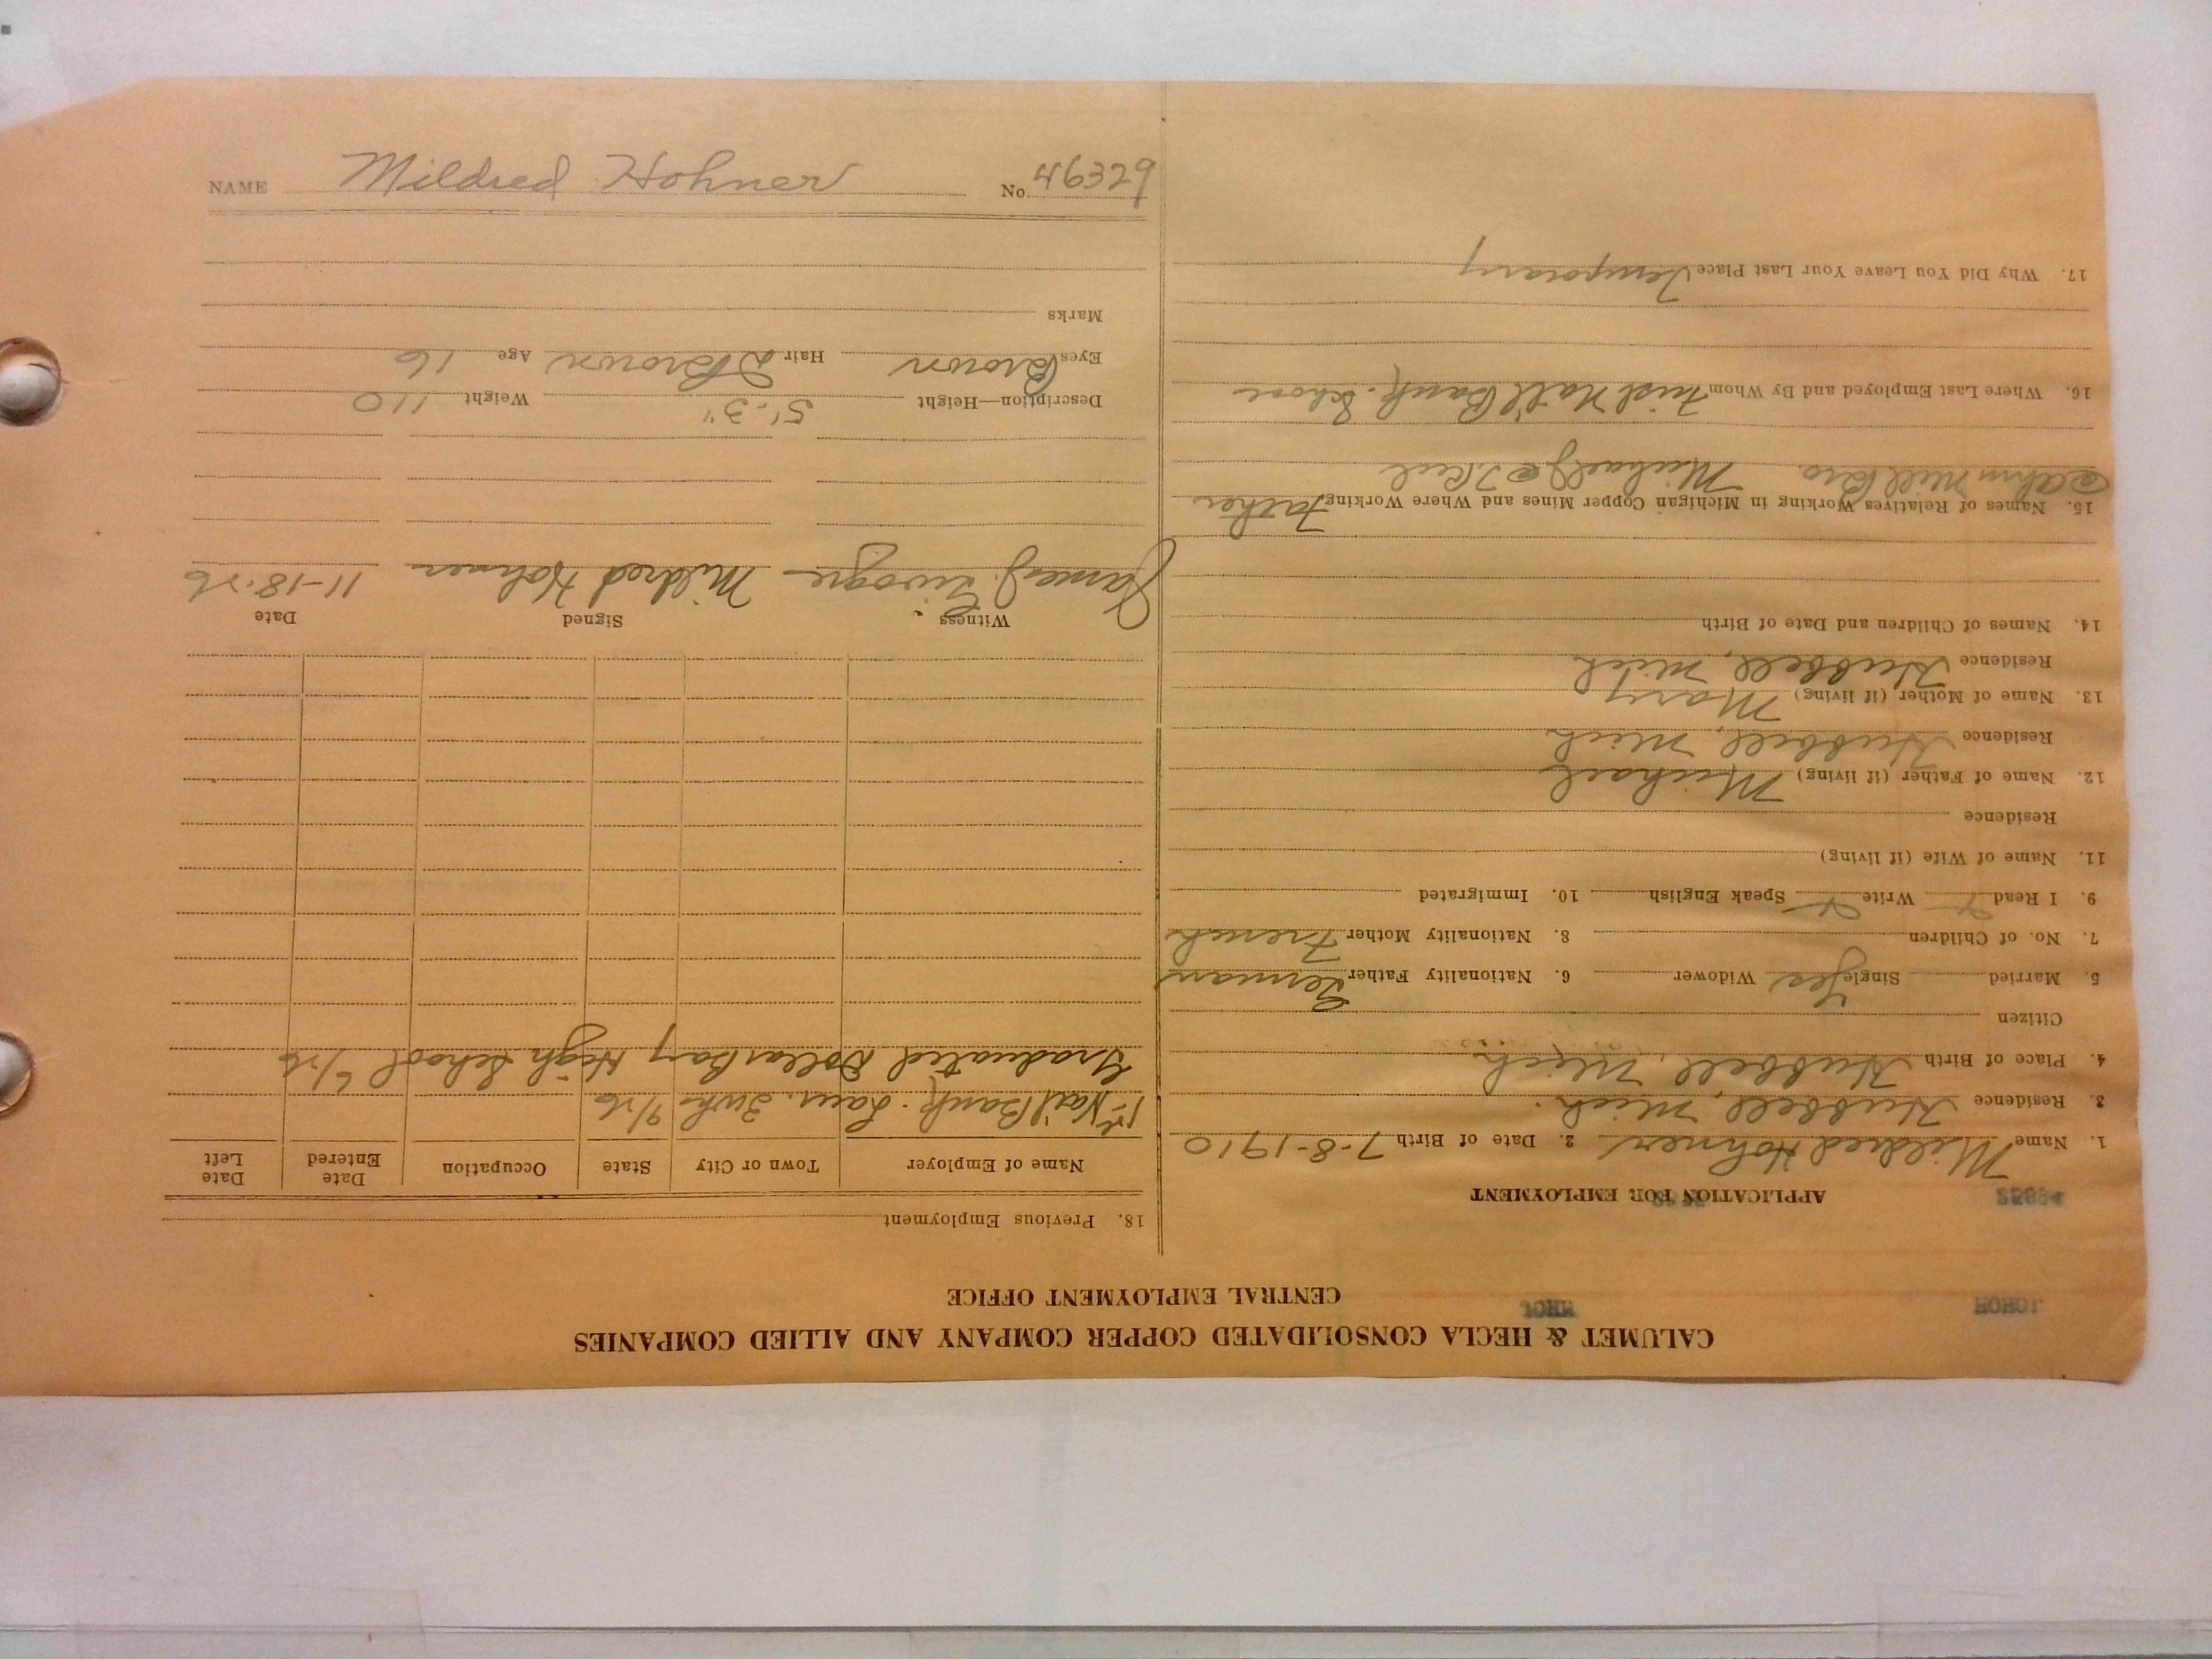 CALUMET & HECLA CONSOLIDATED COPPER COMPANY AND ALLIED COMPANIES
CENTRAL EMPLOYMENT OFFICE
APPLICATION FOR EMPLOYMENT
1. Name Mildred Hohner 2. Date of Birth 7-8-1910
3. Residence Hubbell, Mich.
4. Place of Birth Hubbell, Mich
Citizen
5. Married Single Yes Widower 6. Nationality Father German
7. No. of Children 8. Nationality Mother French
9. I Read Write Speak English 10. Immigrated
11. Name of Wife (if living)
Residence
12. Name of Father (if living) Michael
Residence Hubbell, Mich
13. Name of Mother (if living) Mary
Residence Hubbell, Mich
14. Names of Children and Date of Birth
15. Names of Relatives Working in Michigan Copper Mines and Where Working Father
Michael @
16. Where Last Employed and By Whom First Nat'l Bank. School
17. Why Did You Leave Your Last Place Temporary
18. Previous Employment
Name of Employer Town or City State Occupation Date Entered Date Left
1st Nat'l Bank. 9/26
Graduated Dollar Bay High School 6/26
Witness Signed Date
James J. Mildred Hohner 11-18-26
Description—Height 5'.3" Weight 110
Eyes Brown Hair D Brown Age 16
Marks
NAME Mildred Hohner No. 46329